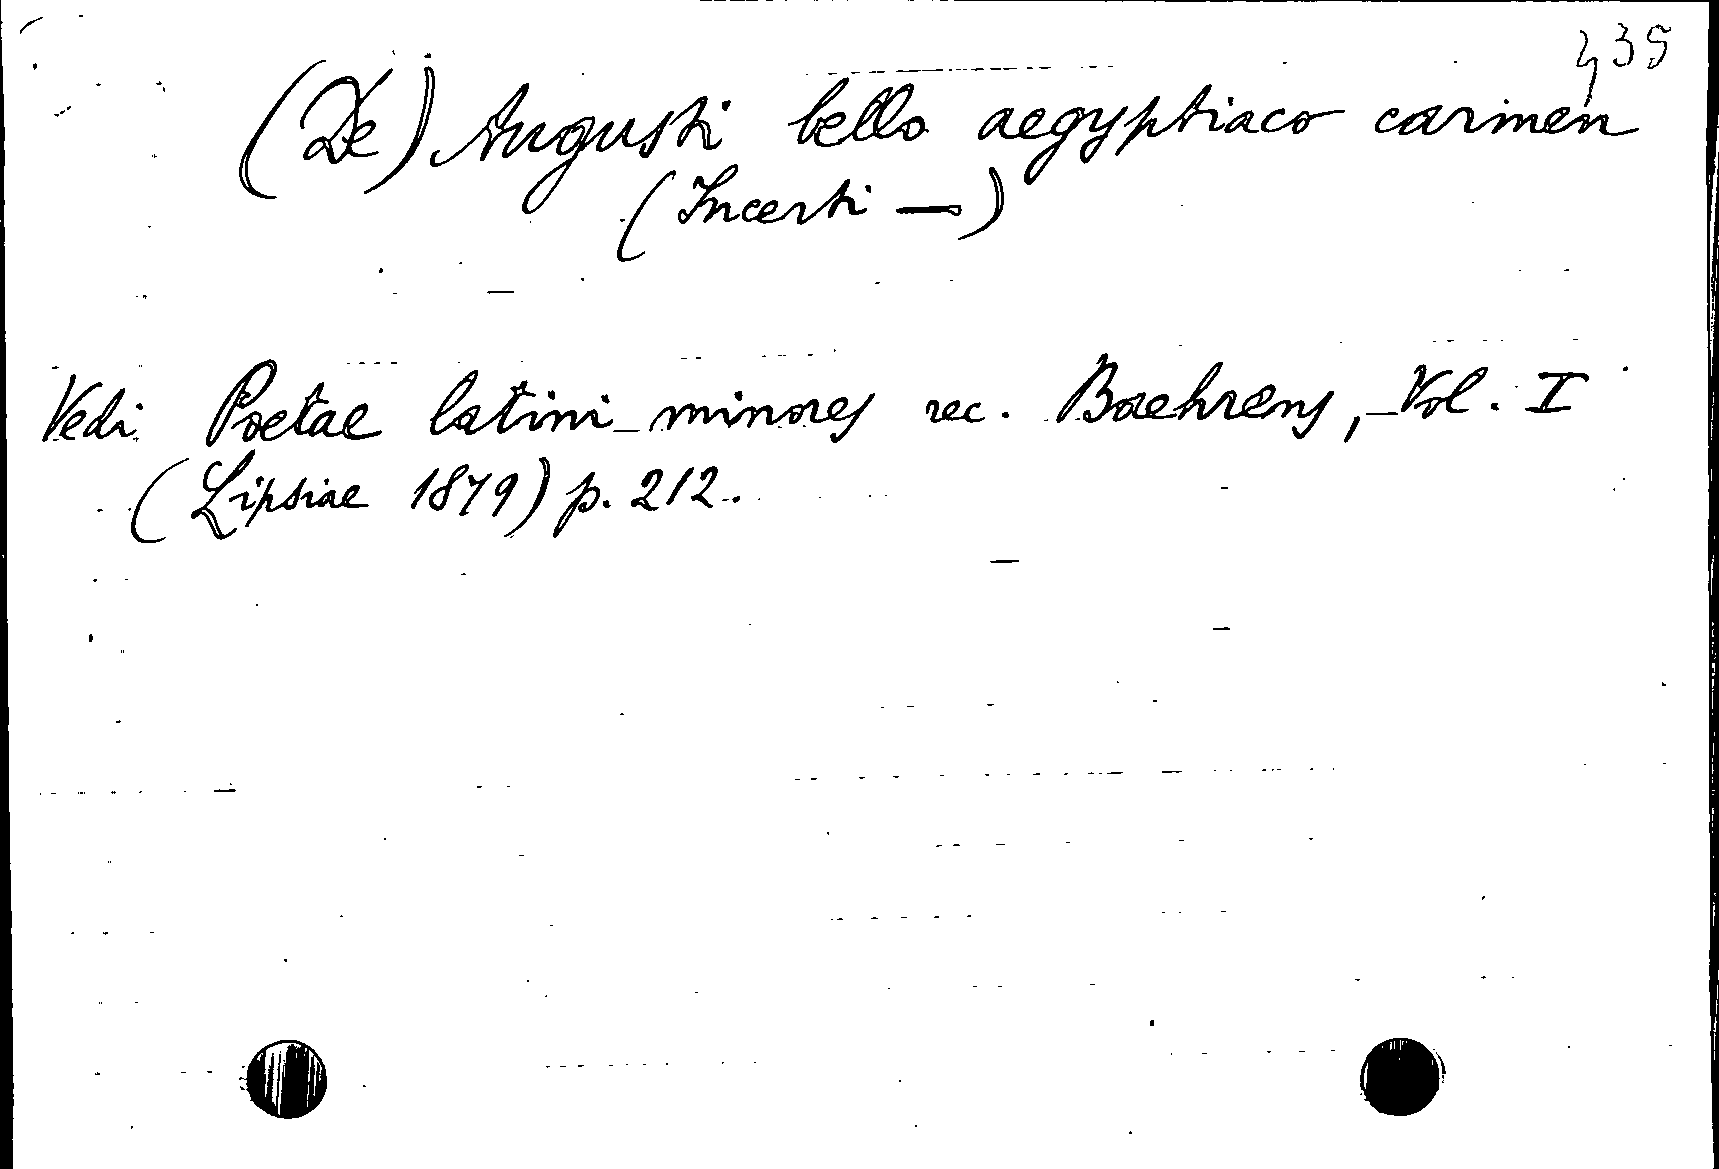 435
(De) Augusti bello aegyptiaco carmen
(Incerti —)
Vedi Poetae latini minores rec. Baehrens, Vol. I
(Lipsiae 1879) p. 212.